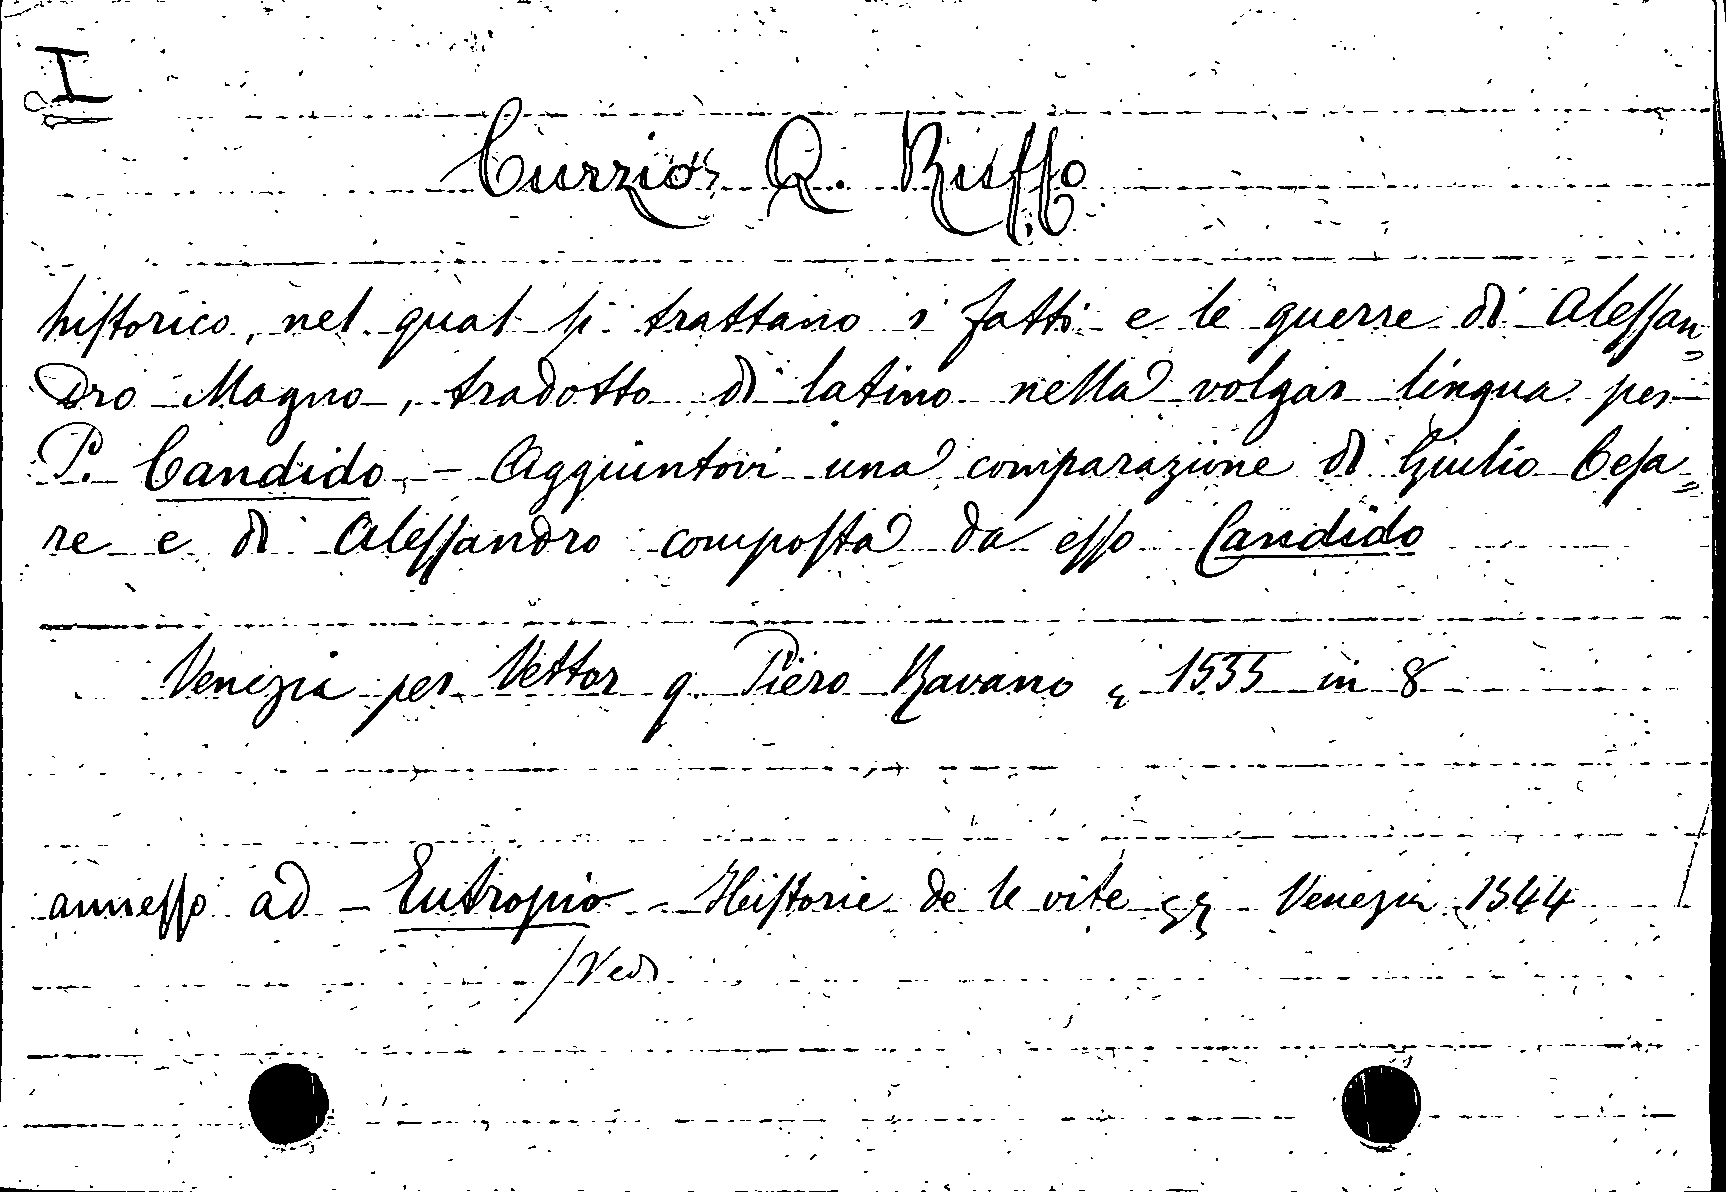 I
Curzio, Q. Ruffo
historico, nel qual si trattano i fatti e le guerre di Alessan=
dro Magno, tradotto di latino nella volgar lingua per
P. Candido, - Aggiuntovi una comparazione di Giulio Cesa=
re e di Alessandro composta da esso Candido
Venezia per Vettor q. Piero Ravano, 1535 in 8
annesso ad - Eutropio - Historie de le vite Venezia 1544
/Vedi